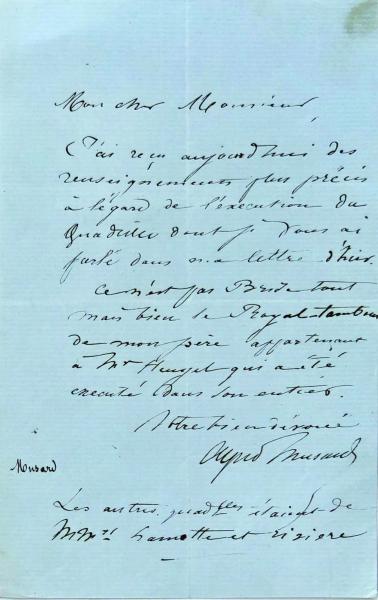 Mon cher Monsieur
J'ai reçu aujourd'hui des
renseignements plus précis
à l'égard de l'execution du
Quadrille dont je vous ai
parlé dans ma lettre d'hier.
ce n'est pas Brise tout
mais bien le Royal-tambour
de mon père appartenant
à Mr Heugel qui a été
executé dans son entier.
Votre bien dévoué
Alfred Musard
Musard
Les autres quadlles étaient de
MMrs Lamotte et rivière